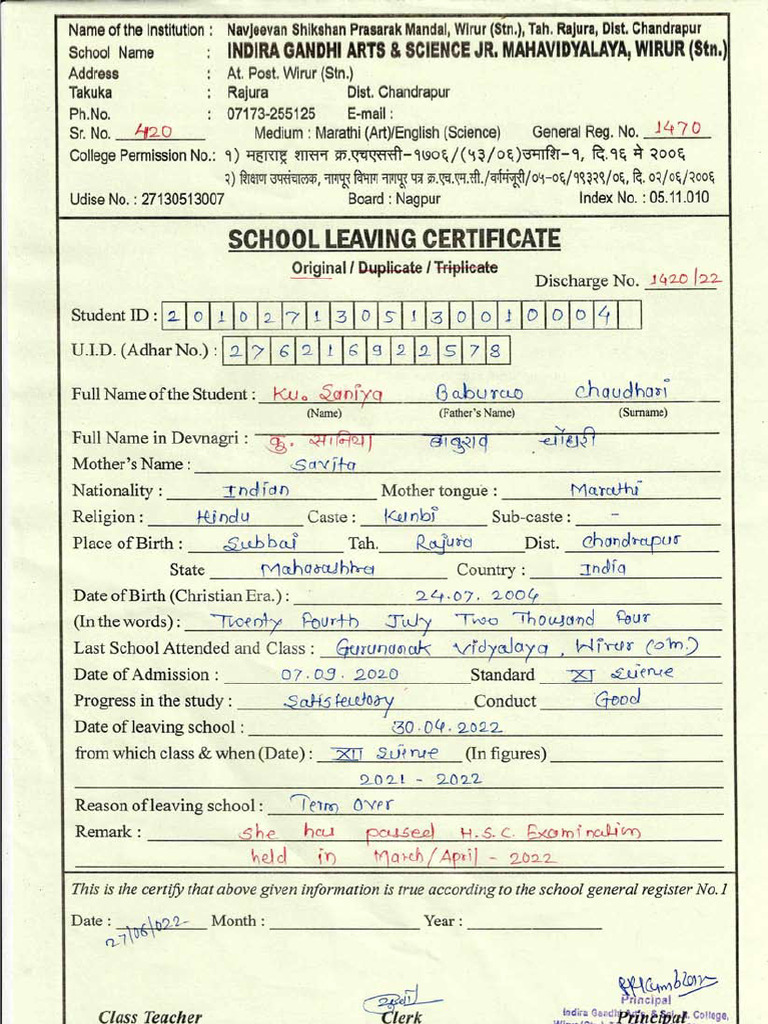 Name of the Institution : Navjeevan Shikshan Prasarak Mandal, Wirur (Stn.), Tah. Rajura, Dist. Chandrapur
School Name : INDIRA GANDHI ARTS & SCIENCE JR. MAHAVIDYALAYA, WIRUR (Stn.)
Address : At. Post. Wirur (Stn.)
Takuka : Rajura Dist. Chandrapur
Ph.No. : 07173-255125 E-mail :
Sr. No. 420 Medium : Marathi (Art)/English (Science) General Reg. No. 1470
College Permission No.: १) महाराष्ट्र शासन क्र.एचएससी-१७०६/(५३/०६)उमाशि-१, दि.१६ मे २००६
२) शिक्षण उपसंचालक, नागपूर विभाग नागपूर पत्र क्र.एच.एम.सी./वर्गमंजूरी/०५-०६/१९३२९/०६, दि. ०२/०६/२००६
Udise No. : 27130513007 Board : Nagpur Index No. : 05.11.010
SCHOOL LEAVING CERTIFICATE
Original / Duplicate / Triplicate
Discharge No. 1420/22
Student ID : 2010271305130010004
U.I.D. (Adhar No.) : 276216922578
Full Name of the Student : Ku. Saniya Baburao Chaudhari
(Name) (Father's Name) (Surname)
Full Name in Devnagri : कु. सानिया बाबुराव चौधरी
Mother's Name : Savita
Nationality : Indian Mother tongue : Marathi
Religion : Hindu Caste : Kunbi Sub-caste : -
Place of Birth : Subbai Tah. Rajura Dist. Chandrapur
State Maharashtra Country : India
Date of Birth (Christian Era.) : 24.07.2004
(In the words) : Twenty Fourth July Two Thousand Four
Last School Attended and Class : Gurunanak Vidyalaya, Wirur (stn.)
Date of Admission : 07.09.2020 Standard XI Science
Progress in the study : Satisfectory Conduct Good
Date of leaving school : 30.04.2022
from which class & when (Date) : XII Science (In figures)
2021 - 2022
Reason of leaving school : Term Over
Remark : She has passed H.S.C. Examination
held in March/April - 2022
This is the certify that above given information is true according to the school general register No.1
Date : 27/06/022 Month : Year :
Principal
Class Teacher Clerk Principal